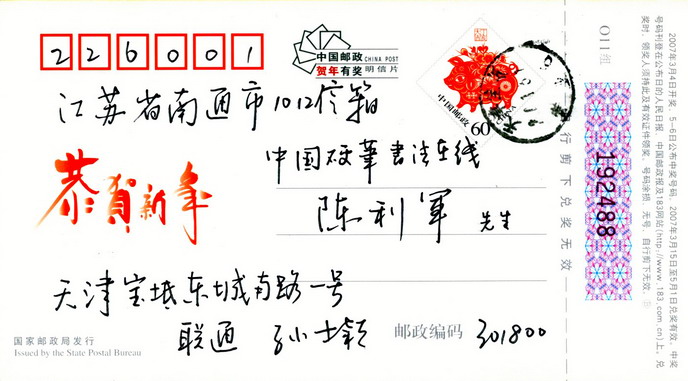 226001
中国邮政 CHINA POST
贺年有奖 明信片
中国邮政
60
江苏省南通市1012信箱
中国硬筆書法在线
陈利军 先生
恭贺新年
天津宝坻东城南路一号
联通 孙士颖
邮政编码 301800
国家邮政局发行
Issued by the State Postal Bureau
行剪下兑奖无效
011组
192488
2007年3月4日开奖,5-6日公布中奖号码。2007年3月15日至5月1日兑奖有效。中奖
号码刊登在公布日的人民日报、中国邮政报及183网站(http://www.183.com.cn)上。兑
奖时,领奖人须持此及有效证件领奖。号码涂损、无号、自行剪下无效。